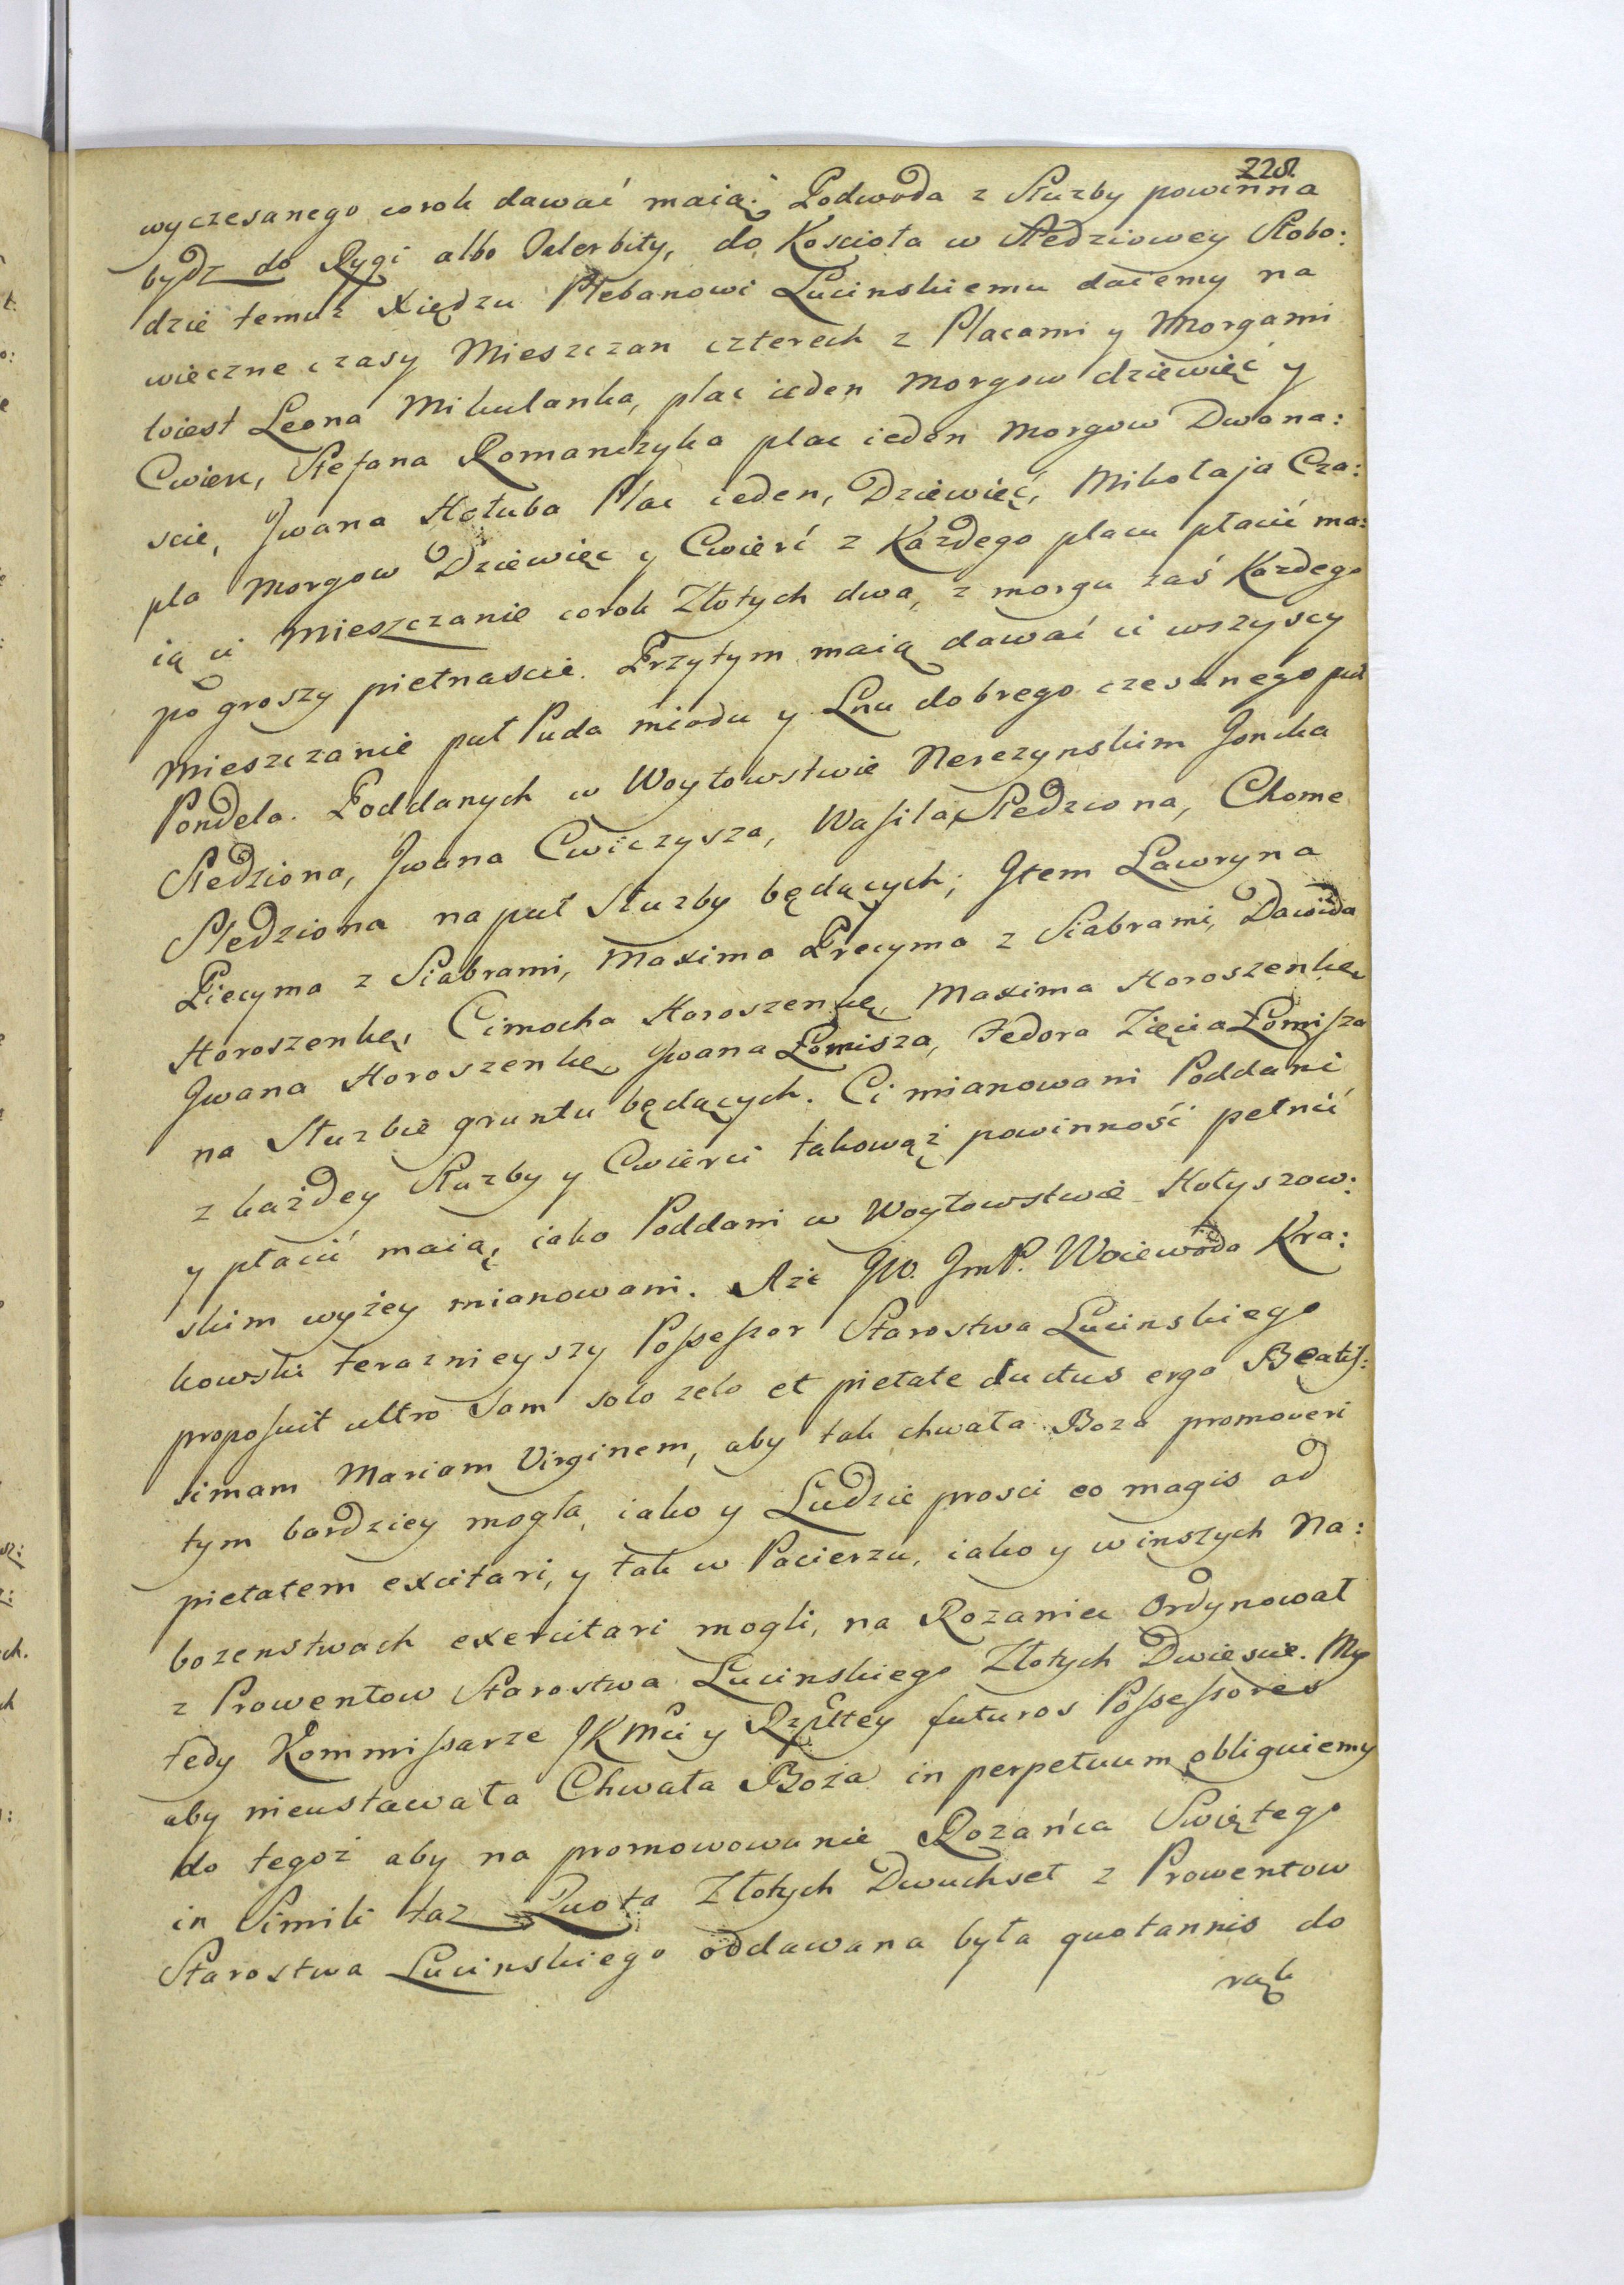 228.
wyczesanego corok dawać maią. Podwoda z Służby powinna
bydz do Rygi albo Palerbity, do Kościoła w Sledziowey Słobo:
dzie temuz Xiędzu Plebanowi Lucinskiemu daiemy na
wieczne czasy Mieszczan czterech z Placami y Morgami
toiest Leona Mikulanka, plac ieden Morgow dziewięć y
Cwierc, Stefana Romanczyka plac ieden Morgow Dwana:
scie, Jwana Hołuba Plac ieden, Dziewięć, Mikołaja Cza:
pla Morgow Dziewięc y Cwierć z Każdego placu płacić ma:
ią ci Mieszczanie corok Złotych dwa, z morgu zaś Kazdego
po groszy pietnascie. Przytym maią dawać ci wszyscy
Mieszczanie puł Puda miodu y Lnu dobrego czesanego puł
Pondela. Poddanych w Woytowstwie Nerezynskim Jonka
Sledziona, Jwana Cwiczysza, Wasila Sledziona, Chome
Sledziona na puł Służby będących; Jtem Ławryna
Piecyma z Siabrami, Maxima Precyma z Siabrami, Dawida
Horoszenkę, Cimocha Horoszenkę, Maxima Horoszenkę
Jwana Horoszenkę Jwana Łomisza, Fedora Zięcia Łomisza
na Służbie gruntu będących. Ci mianowani Poddani
z każdey Służby y Cwierci takowąż powinność pełnić
y płacić maią, iako Poddani w Woytowstwie Hołyszow:
skim wyżey mianowani. Aże JW. JmP. Woiewoda Kra:
kowski teraznieyszy Possessor Starostwa Lucinskiego
proposuit ultro sam solo zelo et pietate ductus ergo Beatis:
simam Mariam Virginem, aby tak chwała Boza promoveri
tym bardziey mogła, iako y Ludzie prosci eo magis ad
pietatem excitari, y tak w Pacierzu, iako y w inszych Na:
bozenstwach exercitari mogli, na Rozaniec Ordynował
z Prowentow Starostwa Lucinskiego Złotych Dwiescie. My
tedy Kommissarze JKMci y Rzpltey futuros Possessores
aby nieustawała Chwała Boża in perpetuum obliguiemy
do tegoż aby na promowowanie Rozańca Swiętego
in Simili taz Quota Złotych Dwuchset z Prowentow
Starostwa Lucinskiego oddawana była quotannis do
rąk